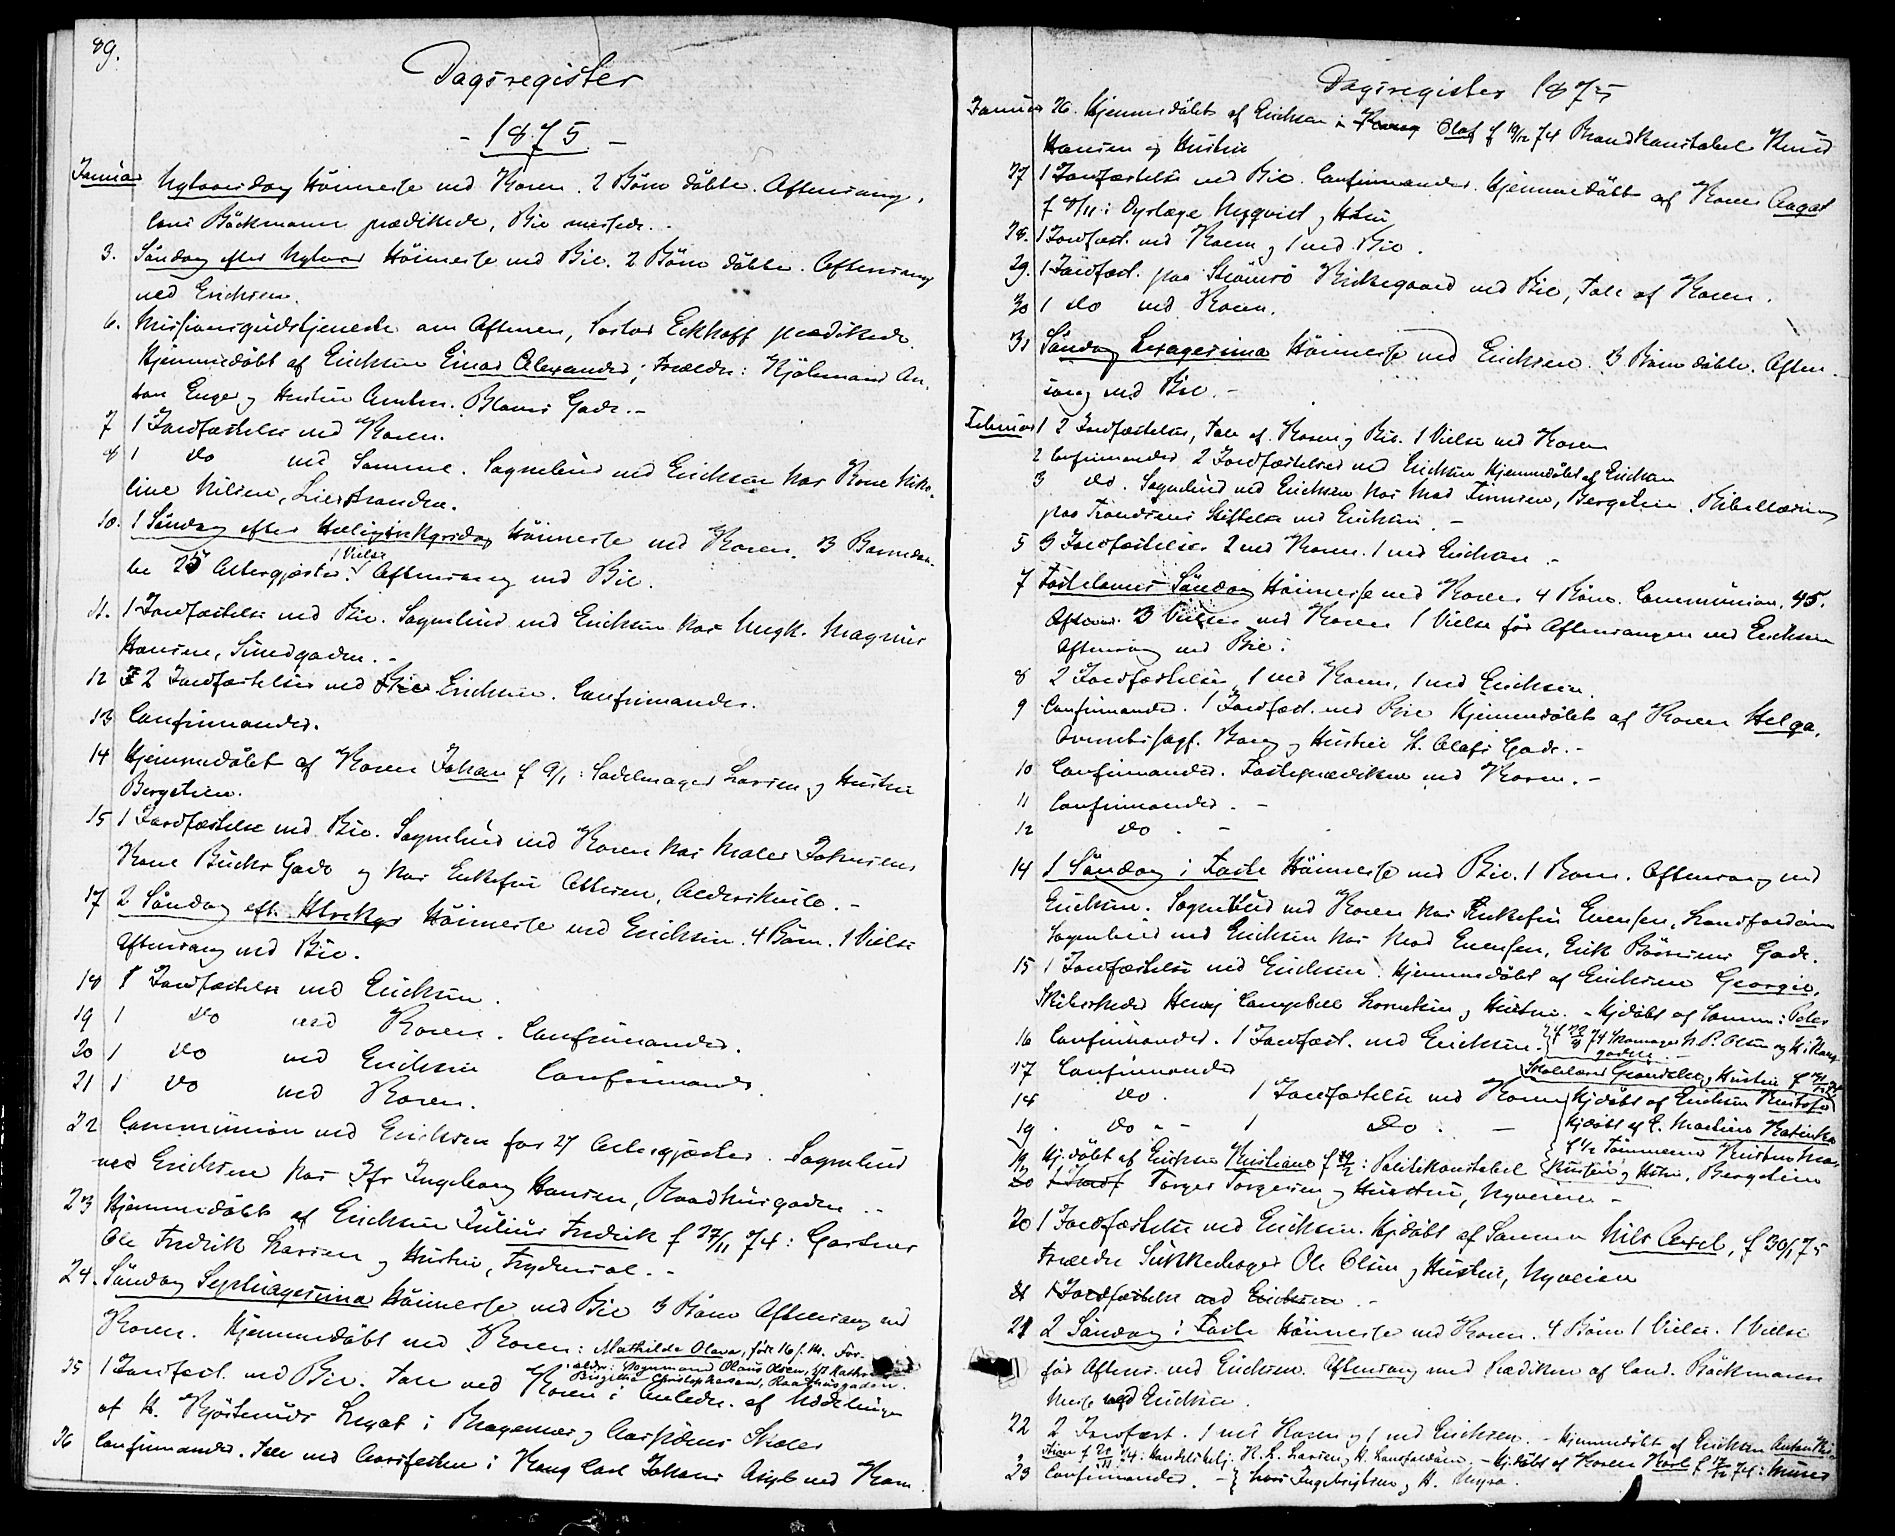 89.
Dagsregister
- 1875 -
Januar Nytaarsdag Höimesse ved Koren. 2 Börn döbte. Aftensang,
Cand Böckmann prædikede, Bie messede.
3. Söndag efter Nytaar Höimesse ved Bie. 2 Börn döbte. Aftensang
ved Erichsen.
6. Missionsgudstjeneste om Aftenen, Pastor Eckhoff prædikede.
Hjemmedöbt af Erichsen Einar Alexander; Forældre: Kjölmand An-
ton Enger og Hustru Gade.-
7 1 Jordfæstelse ved Koren.
8 1 do ved Samme. Sognebud ved Erichsen hos Kone Niko-
line Nilsen, Lierstranden.
10. 1 Söndag efter Helligtrekgrsdag Höimesse ved Koren. 3 Barnedaa-
be 25 Altergjæster. 1 Vielse Aftensang ved Bie.
11. 1 Jordfæstelse ved Bie. Sognebud ved Erichsen hos Ungk. Magnus
Hansen, Smedgaden.-
12 2 Jordfæstelser ved Bie Erichsen. Confirmander.
13 Confirmander.
14 Hjemmedöbt af Koren Johan f 9/1: Sadelmager Larsen og Hustru
Bergstien.
15 1 Jordfæstelse ved Bie. Sognebud ved Koren hos Maler Johnsens
Kone Buchs Gade og hos Enkefru Ottesen, Aldershvile.-
17 2 Söndag eft. H3rekgr Höimesse ved Erichsen. 4 Börn. 1 Vielse
Aftensang ved Bie.
18 1 Jordfæstelse ved Erichsen.
19 1 do ved Koren. Confirmander.
20 1 do ved Erichsen Confirmander
21 1 do ved Koren.
22 Communion ved Erichsen for 27 Altergjæster. Sognebud
ved Erichsen hos Jfr Ingeborg Hansen, Raadhusgaden..
23 Hjemmedöbt af Erichsen Julius Fredrik f 27/11 74: Gartner
Ole Fredrik Larsen og Hustru, Frydendal.-
24. Söndag Septuagesima Höimesse ved Bie 3 Börn Aftensang ved
Koren. Hjemmedöbt ved Koren: Mathilde Olava, föd 16/ 14. For-
ældr: Sogmand Olaus Olsen,
Birgitte Christophersen, Raadhusgaden.
25 1 Jordfæst. ved Bie. Tale ved Koren i Anledn. af Uddelingen
af H. Kjöstruds Legat i Bragernæs og Aaskodens Skoler
26 Confirmander. Tale ved Aarsfesten i Kong Carl Johans Asyl ved Koren
Dagsregister 1875
Januar 26. Hjemmedöbt af Erichsen Olaf f 19/12 74 Brandkonstabel Knud
Hansen og Hustru
27 1 Jordfæstelse ved Bie. Confirmander. Hjemmedöbt af Koren Aagot
f 8/11: Dyrlæge Nyqvist og Hstru
28. 1 Jordfæst. ved Koren og 1 ved Bie.
29. 1 Jordfæst. paa Strömsö Kirkegaard ved Bie, Tale af Koren.
30 1 do ved Koren.
31 Söndag Sexagesima Höimesse ved Erichsen. 3 Börn döbte. Aften-
sang ved Bie.-
Februar 1 2 Jordfæstelser, Tale af Koren og Bie. 1 Vielse ved Koren
2 Confirmander 2 Jordfæstelser ved Erichsen Hjemmedöbt af Erichsen
3 do. Sognebud ved Erichsen hos Mad Finnsen, Bergstien. Bibellæsning
paa Trondsens Stiftelse ved Erichsen.-
5 3 Jordfæstelser 2 ved Koren. 1 ved Erichsen.-
7 Fastelavns-Söndag Höimesse ved Koren 4 Börn. Communion. 45.
Aftens. 3 Vielser ved Koren 1 Vielse för Aftensangen ved Erichsen
Aftensang ved Bie.
8 2 Jordfæstelser, 1 ved Koren, 1 ved Erichsen.
9 Confirmander. 1 Jordfæst. ved Bie Hjemmedöbt af Koren Helga,
Borg og Hustru St. Olafs Gade.-
10 Confirmander. Fasteprædiken ved Koren.-
11 Confirmander.-
12 do.-
14 1 Söndag i Faste Höimesse ved Bie. 1 Barn. Aftensang ved
Erichsen. Sognebud ved Koren hos Enkefru Evensen, Landfaldöen
Sognebud ved Erichsen hos Mad Evensen, Erik Börresens Gade.
15 1 Jordfæstelse ved Erichsen. Hjemmedöbt af Erichsen Georgie,
Skibsreder Henry Campbell og Hustru. - Hjdöbt af Samme: Peder
16 Confirmander. 1 Jordfæst. ved Erichsen. 74 Skomager N. P. Olsen og H. i Kong-
gaden.-
17 Confirmander
Skolelærer og Hustru
18 do. 1 Jordfæstelse ved Koren Hjdöbt af Erichsen
19 do - 1 Do.- Hjdöbt af E. Martine Katinka
19 Hj.döbt af Erichsen Kristiane f : Politikonstabel
20 1 Jordf Torger Torgersen og Hustru, Nyveien.- Hstru, Bergstien
20 1 Jordfæstelse ved Erichsen. Hjdöbt af Samme Nils Axel, f 30/1 75
Forældre Snekker Ole Olsen og Hustru, Nyveien
21 1 Jordfæstelse ved Erichsen.-
21 2 Söndag i Faste Höimesse ved Koren. 4 Börn 1 Vielse. 1 Vielse
för Aftens. ved Erichsen. Aftensang med Prædiken af Cand. Böckmann
Messe ved Erichsen.
22 2 Jordfæst. 1 ved Koren og 1 ved Erichsen.- Hjemmedöbt af Erichsen Anton
: Handelsbetj. H. L. Larsen, H. Landfaldöen.- Hj.döbt af Koren Karl f 74: Murer
23 Confirmander.- Ingebrigtsen og H. Myra.